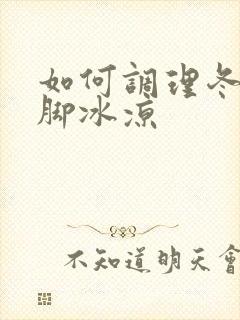 如何調理冬
脚冰凉
不知道明天會